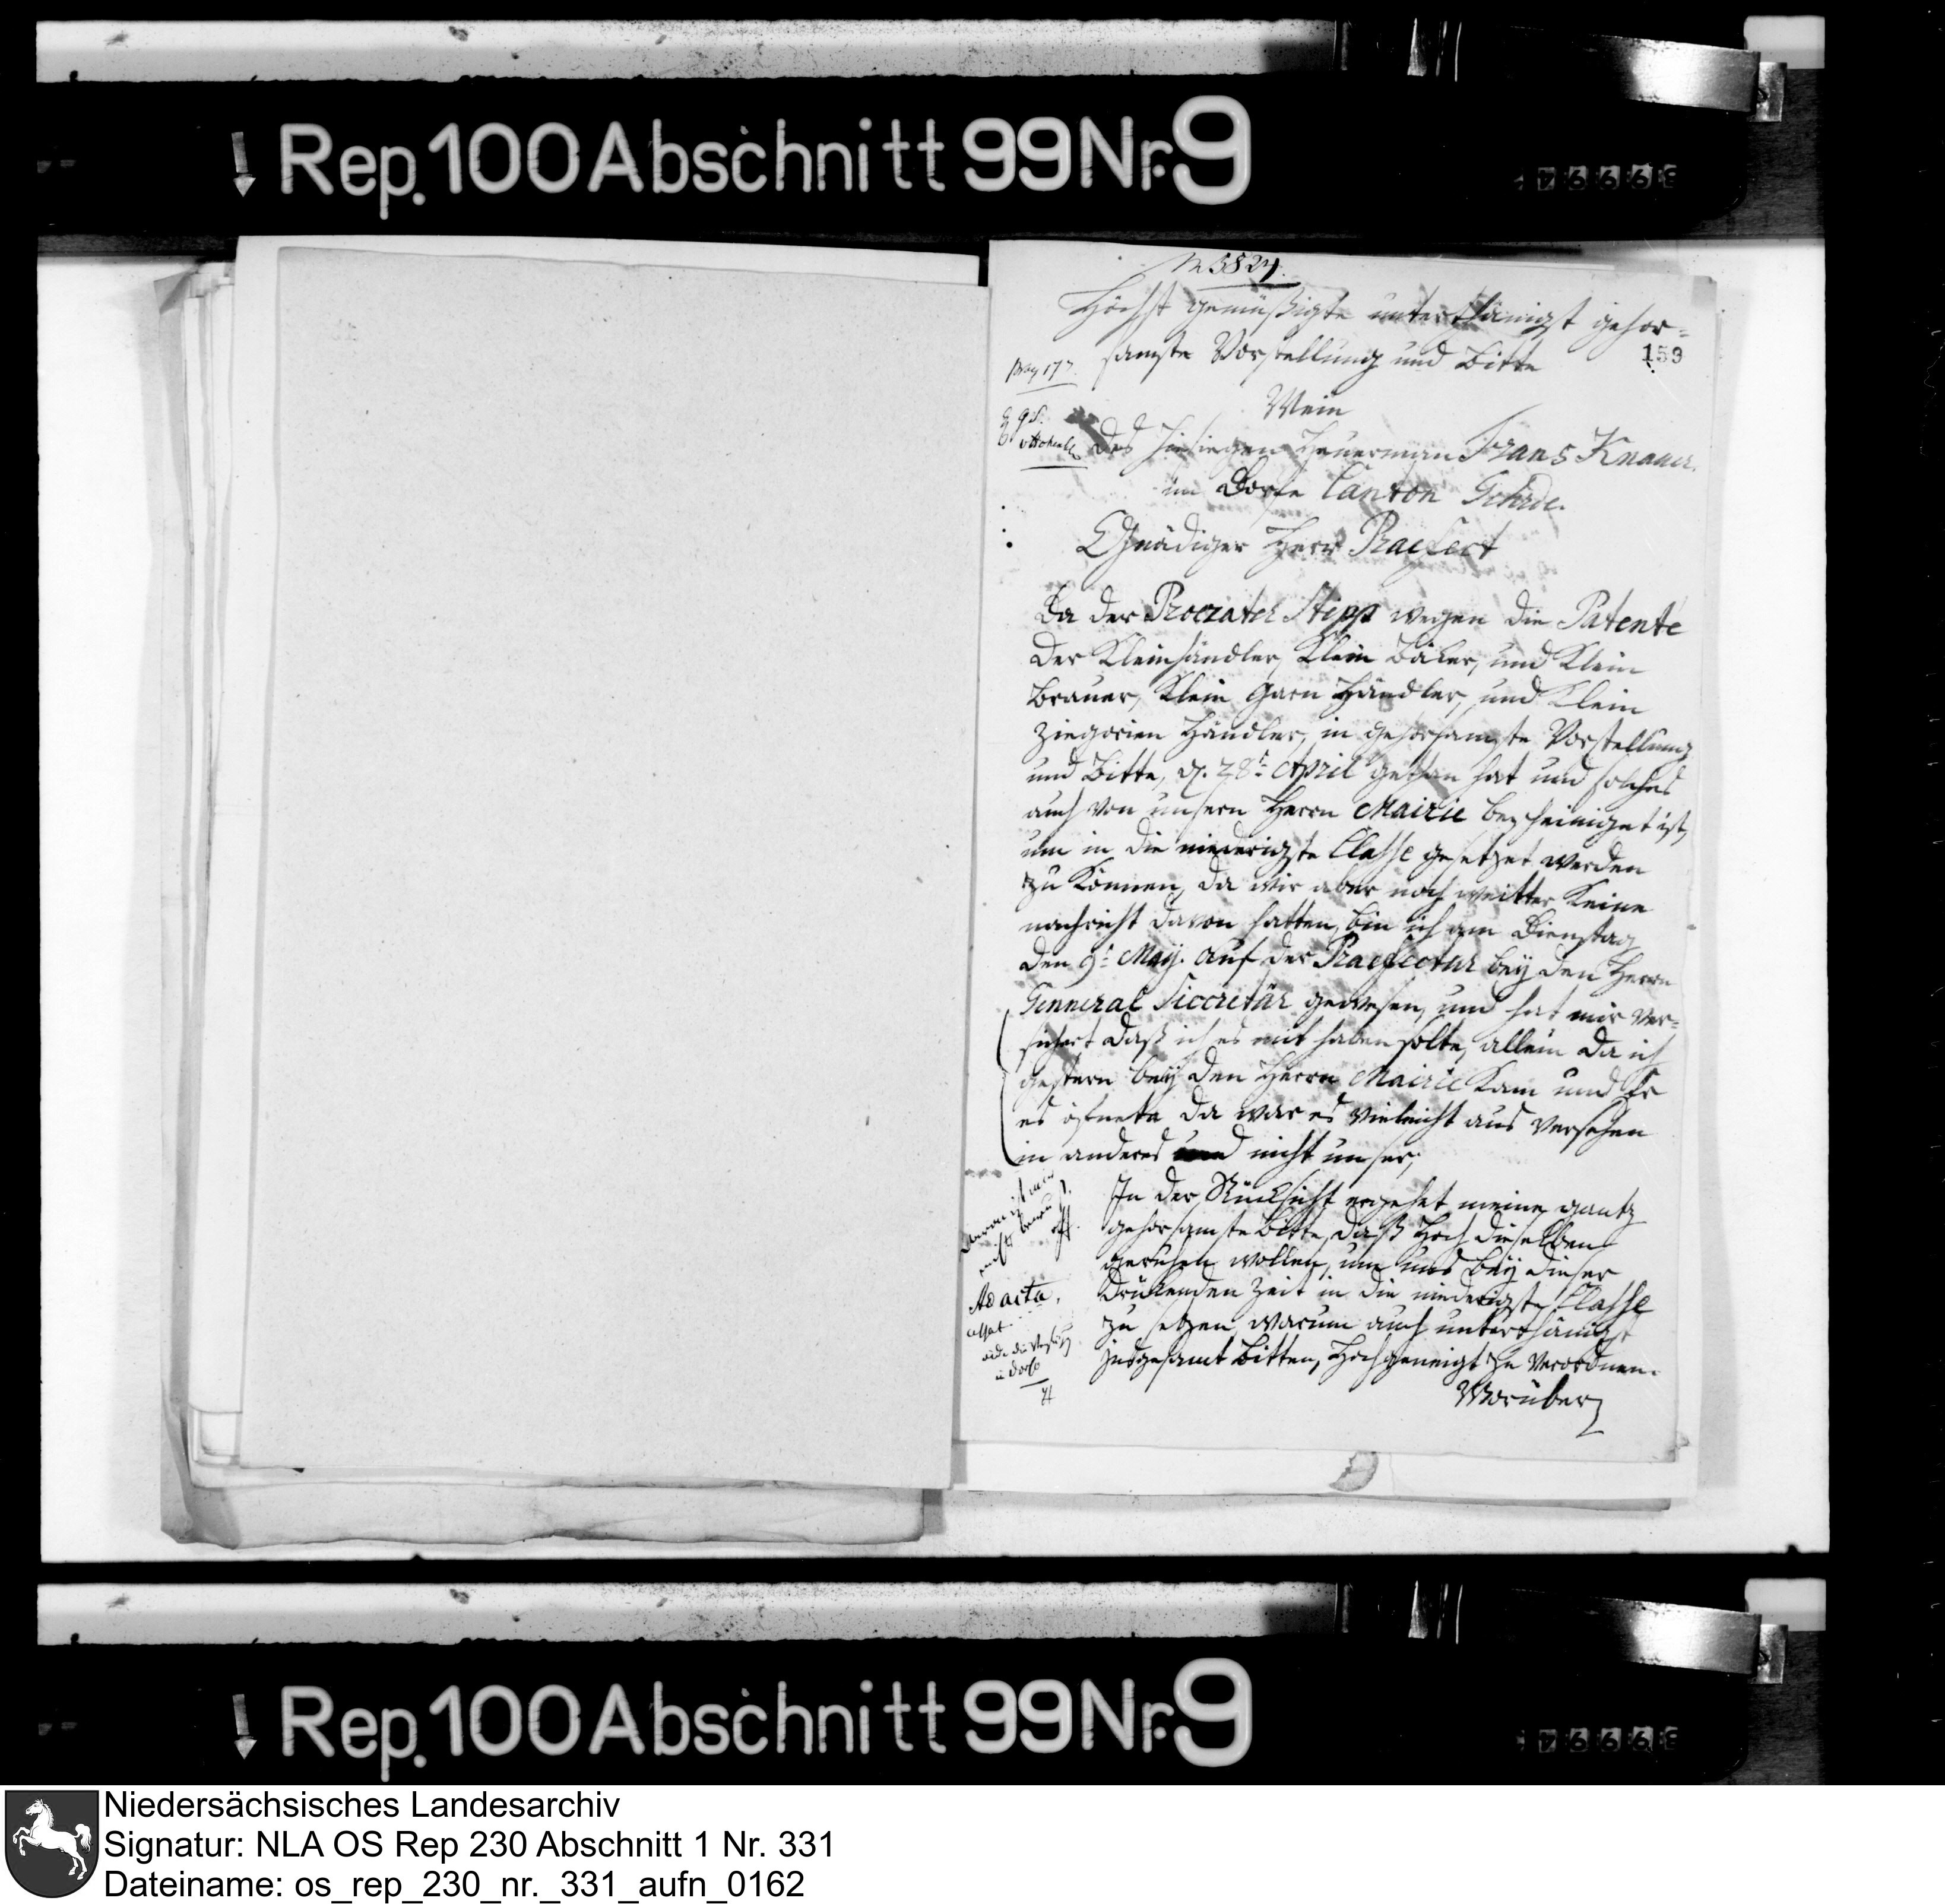 Rep. 100 Abschnitt 99 Nr. 9
N 5824.
Höchst gemüßigte unterthänigst gehor-
samste Vorstellung und Bitte
159
Mein
des hiesigen Heuerman Frans Knauer.
im Dorfe Canton Gehrde.
Gnädiger Herr Praefect
Da der Procrater Stepp wegen die Patente
der Kleinhändler, Klein Bäker, und Klein
Brauer, Klein Garn Händler, und Klein
Ziegorien Händler, in gehorsamste Vorstellung
und Bitte, d. 28t April gethan hat und solches
auch von unsern Herrn Mairie bescheiniget ist,
um in die niederigste Classe gesetzet werden
zu können, da wir aber noch weitter keine
nachricht davon hatten, bin ich am Dienstag
den 9t May. auf der Praefectur beÿ den Herrn
Genneral Siccretär gewesen, und hat mir ver-
sichert daß ich es mit haben solte, allein da ich
gestern beÿ den Herrn Mairie kam und Er
es öfnete da war es vieleicht aus versehen
ein anderes und nicht unser,
In der Rücksicht ergehet meine gantz
gehorsamste bitte, daß Hoch dieselben
geruhen wollen, um uns beÿ dieser
drükenden Zeit in die niederigste Classe
zu setzen, warum auch unterthänigst
insgesamt bitten, Hochgeneigt zu verordnen.
Worüber
davon ist mir
nichts bewußt.
Ad acta.
cessat
Rep. 100 Abschnitt 99 Nr. 9
Niedersächsisches Landesarchiv
Signatur: NLA OS Rep 230 Abschnitt 1 Nr. 331
Dateiname: os_rep_230_nr._331_aufn_0162